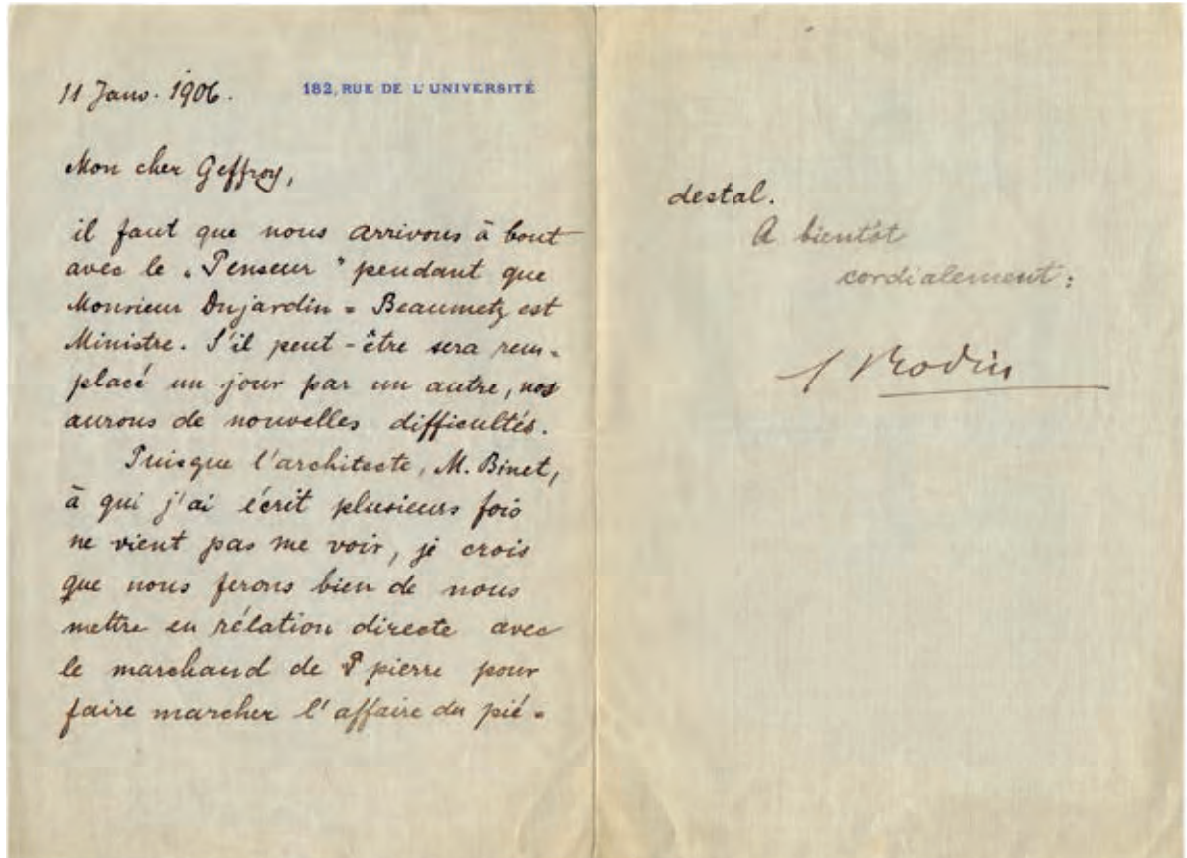 11 Janv. 1906.
182, RUE DE L'UNIVERSITÉ
Mon cher Geffroy,
il faut que nous arrivons à bout
avec le „Penseur" pendant que
Monsieur Dujardin=Beaumetz est
Ministre. S'il peut-être sera rem=
placé un jour par un autre, nos
aurons de nouvelles difficultés.
Puisque l'architecte, M. Binet,
à qui j'ai écrit plusieurs fois
ne vient pas me voir, je crois
que nous ferons bien de nous
mettre en rélation directe avec
le marchand de pierre pour
faire marcher l'affaire du pié=
destal.
A bientôt
cordialement:
A Rodin